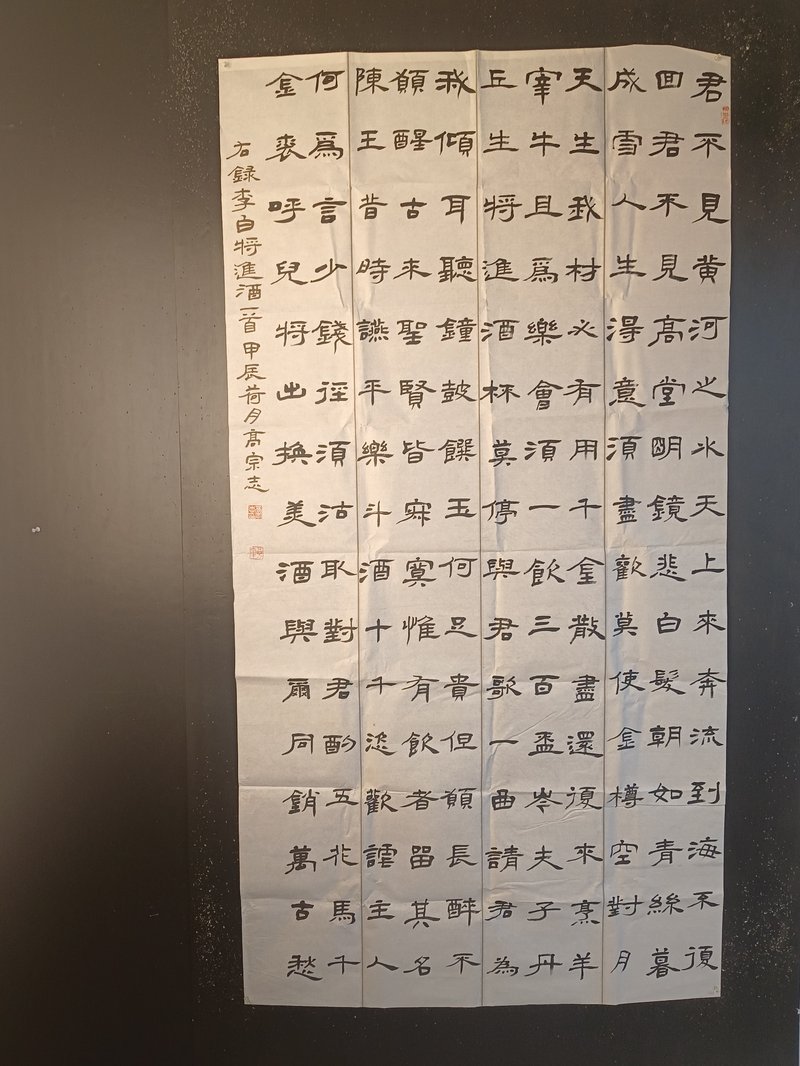 君不見黃河之水天上來奔流到海不復
回君不見高堂明鏡悲白髮朝如青絲暮
成雪人生得意須盡歡莫使金樽空對月
天生我材必有用千金散盡還復來烹羊
宰牛且爲樂會須一飲三百盃岑夫子丹
丘生將進酒杯莫停與君歌一曲請君為
我傾耳聽鐘鼓饌玉何足貴但願長醉不
願醒古來聖賢皆寂寞惟有飲者留其名
陳王昔時讌平樂斗酒十千恣歡謔主人
何爲言少錢徑須沽取對君酌五花馬千
金裘呼兒將出換美酒與爾同銷萬古愁
右錄李白將進酒一首甲辰荷月高宗志